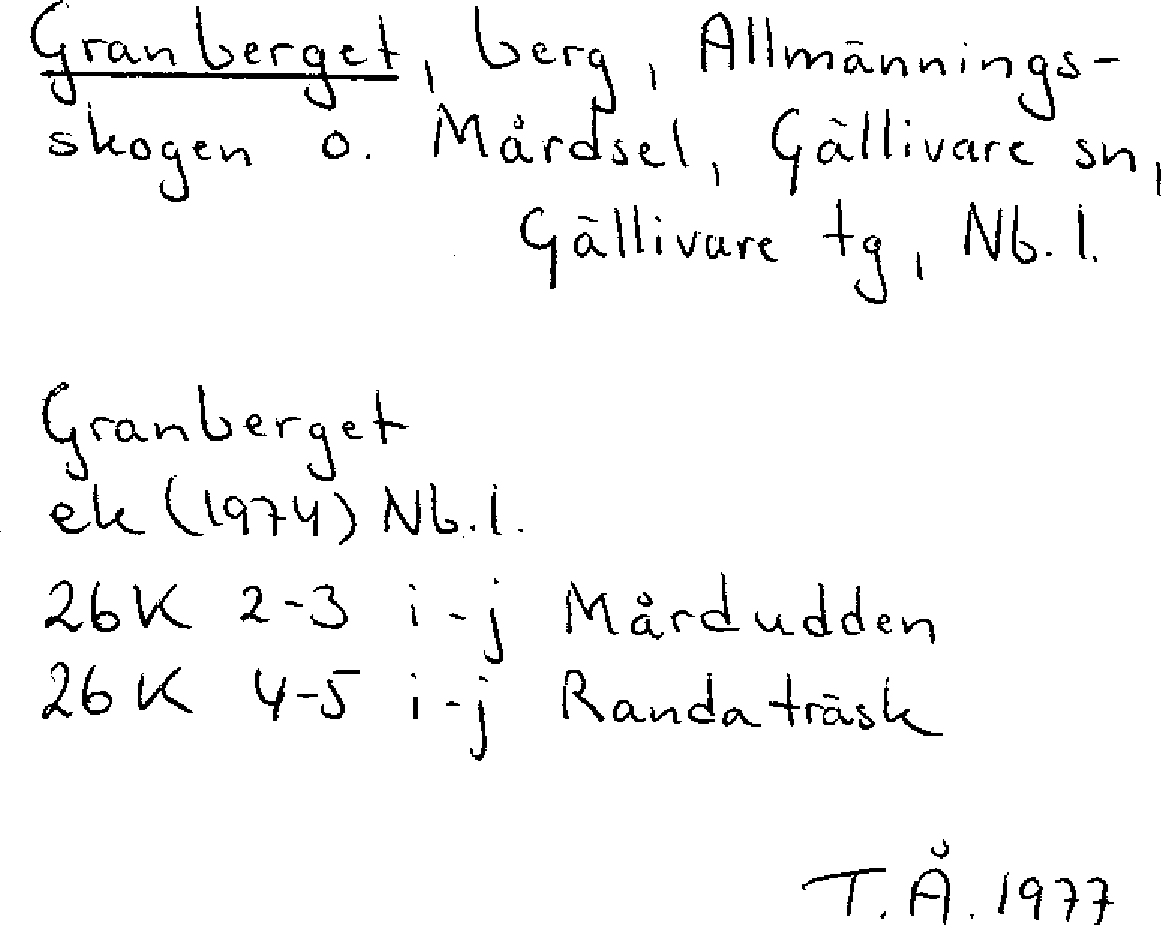 Granberget, berg, Allmännings-
skogen o. Mårdsel, Gällivare sn,
Gällivare tg, Nb. l.
Granberget
ek (1974) Nb. l.
26K 2-3 i-j Mårdudden
26K 4-5 i-j Randaträsk
T.Å. 1977